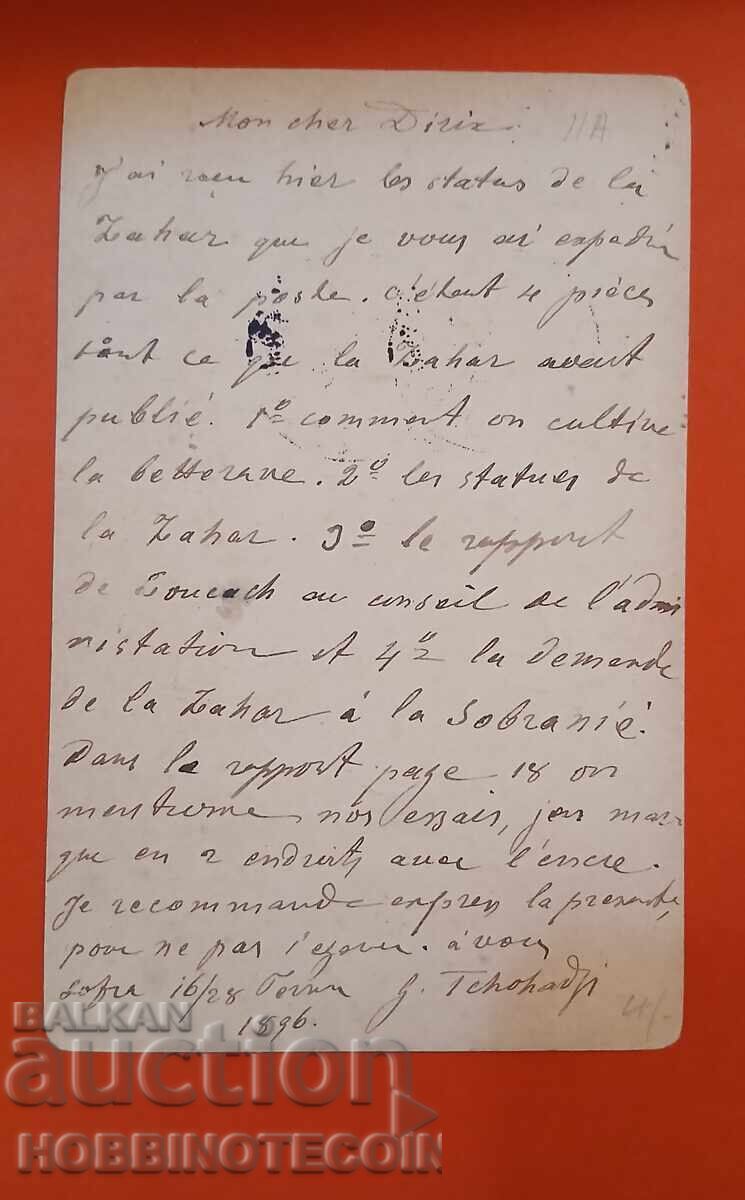 Mon cher Dirix. 11A
J'ai reçu hier les status de la
Zahar que je vous ai expedié
par la poste. c'étent 4 pièces
tout ce que la Zahar avait
publié. 1º comment on cultive
la betterave. 2º les statues de
la Zahar. 3º le rapport
de au conseil de l'admi
nistation et 4º la demande
de la Zahar á la Sobranié.
Dans le rapport page 18 on
mentionne nos essais, j'en mar
que en 2 endroits avec l'encre.
Je recommande expres la presente,
pour ne pas l'egarer. á vous
Sofia 16/28 G. Tchohadji
1896. 4/-
BALKAN
auction
HOBBINOTECOIN